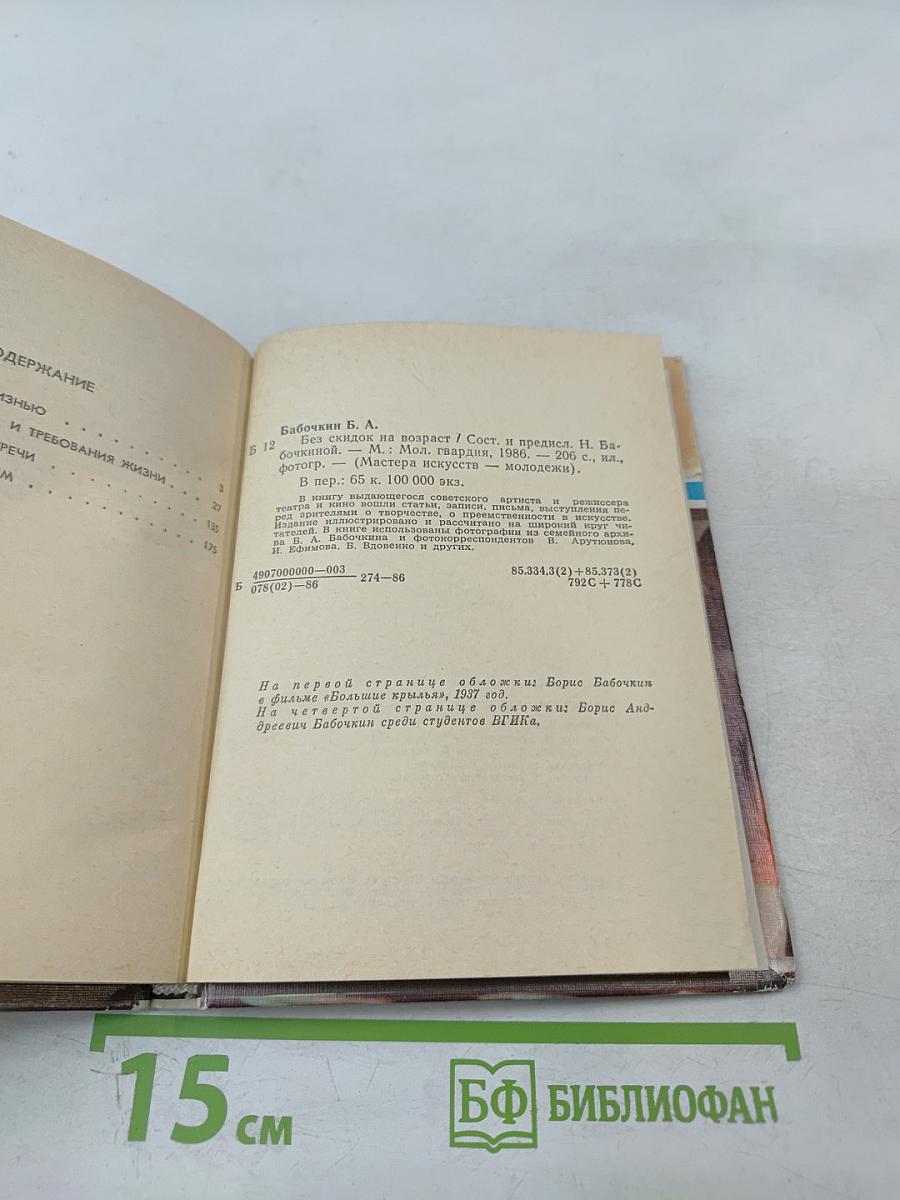 ОДЕРЖАНИЕ
ИЗНЬЮ . . . . . . . 3
И ТРЕБОВАНИЯ ЖИЗНИ . . 27
РЕЧИ . . . . . . . 135
М . . . . . . . 175
Бабочкин Б. А.
Б 12 Без скидок на возраст / Сост. и предисл. Н. Ба-
бочкиной. — М.: Мол. гвардия, 1986. — 206 с., ил.,
фотогр. — (Мастера искусств — молодежи).
В пер.: 65 к. 100 000 экз.
В книгу выдающегося советского артиста и режиссера
театра и кино вошли статьи, записи, письма, выступления пе-
ред зрителями о творчестве, о преемственности в искусстве.
Издание иллюстрировано и рассчитано на широкий круг чи-
тателей. В книге использованы фотографии из семейного архи-
ва Б. А. Бабочкина и фотокорреспондентов В. Арутюнова,
И. Ефимова, Б. Вдовенко и других.
Б 4907000000—003
078(02)—86 274—86
85.334,3(2)+85.373(2)
792С+778С
На первой странице обложки: Борис Бабочкин
в фильме «Большие крылья», 1937 год.
На четвертой странице обложки: Борис Анд-
реевич Бабочкин среди студентов ВГИКа.
15 см
БФ БИБЛИОФАН